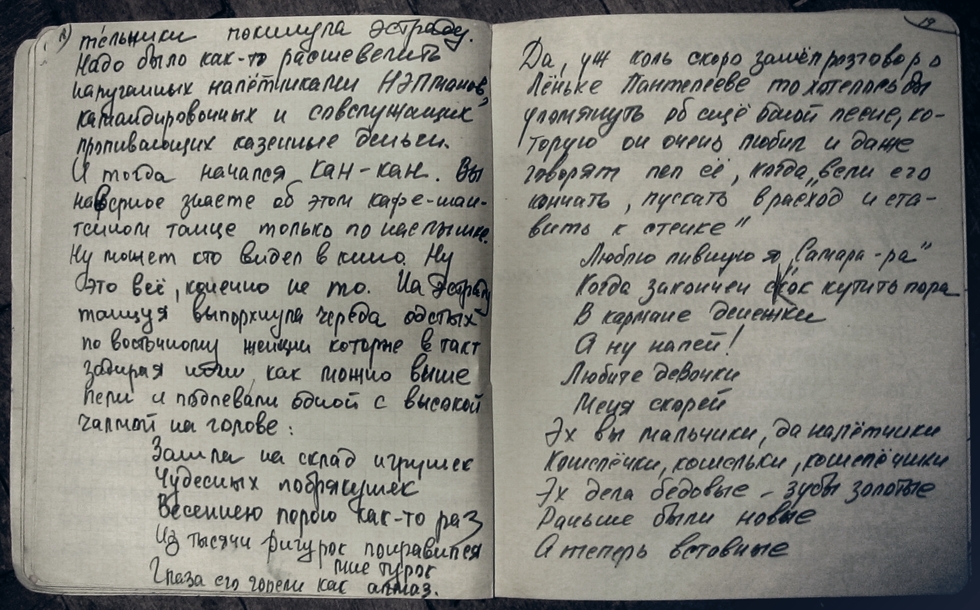 тельники покинула эстраду.
Надо было как-то расшевелить
напуганных налётчиками НЭПманов,
командировочных и совслужащих
пропивающих казенные деньги.
И тогда начался кан-кан. Вы
наверное знаете об этом кафе-шан-
танном танце только по наслышке.
Ну может кто видел в кино. Ну
это всё, конечно не то. На эстраду
танцуя выпорхнула череда одетых
по восточному женщин которые в такт
задирая ноги как можно выше
пели и подпевали одной с высокой
чалмой на голове:
Зашла на склад игрушек
Чудесных побрякушек
Весеннею порою как-то раз
Из тысячи фигурок понравился
мне турок
Глаза его горели как алмаз.
19
Да, уж коль скоро зашёл разговор о
Лёньке Пантелееве то хотелось бы
упомянуть об ещё одной песне, ко-
торую он очень любил и даже
говорят пел её, когда вели его
кончать, "пускать в расход и ста-
вить к стенке"
Люблю пивную я „Самара-ра"
Когда закончен скок кутить пора
В кармане денежки
А ну налей!
Любите девочки
Меня скорей
Эх вы мальчики, да налётчики
Кошелёчки, кошельки, кошелёчики
Эх дела бедовые – зубы золотые
Раньше были новые
А теперь вставные